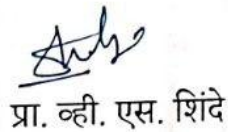 प्रा. व्ही. एस. शिंदे